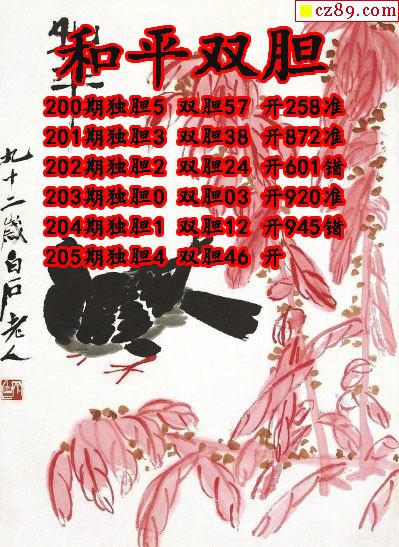 cz89.com
和平双胆
200期独胆5 双胆57 开258准
201期独胆3 双胆38 开872准
202期独胆2 双胆24 开601错
203期独胆0 双胆03 开920准
204期独胆1 双胆12 开945错
205期独胆4 双胆46 开
九十二岁白石老人